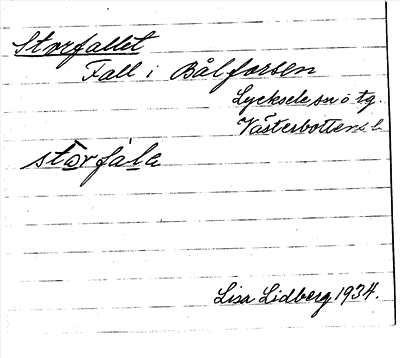 Storfallet
Fall i Bålforsen
Lycksele sn o tg.
Västerbottens l.
storfála
Lisa Lidberg 1934.